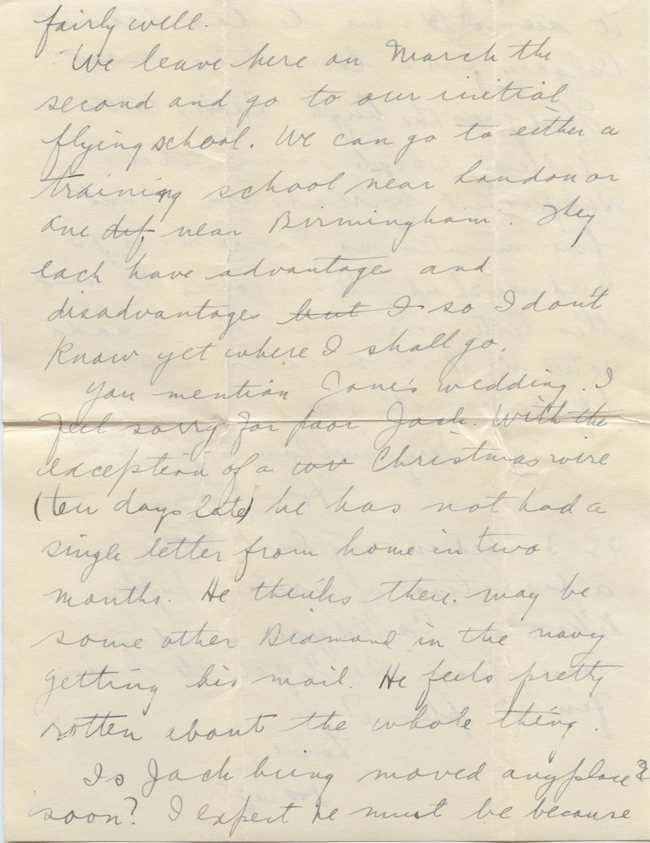 fairly well.
We leave here on March the
second and go to our initial
flying school. We can go to either a
training school near London or
one dif near Birmingham. They
each have advantages and
disadvantages but I so I don't
know yet where I shall go.
You mention Jane's wedding. I
feel sorry for poor Jack. With the
exception of a Christmas wire
(ten days late) he has not had a
single letter from home in two
months. He thinks there may be
some other Diamond in the navy
getting his mail. He feels pretty
rotten about the whole thing.
Is Jack being moved anyplace
soon? I expect he must be because